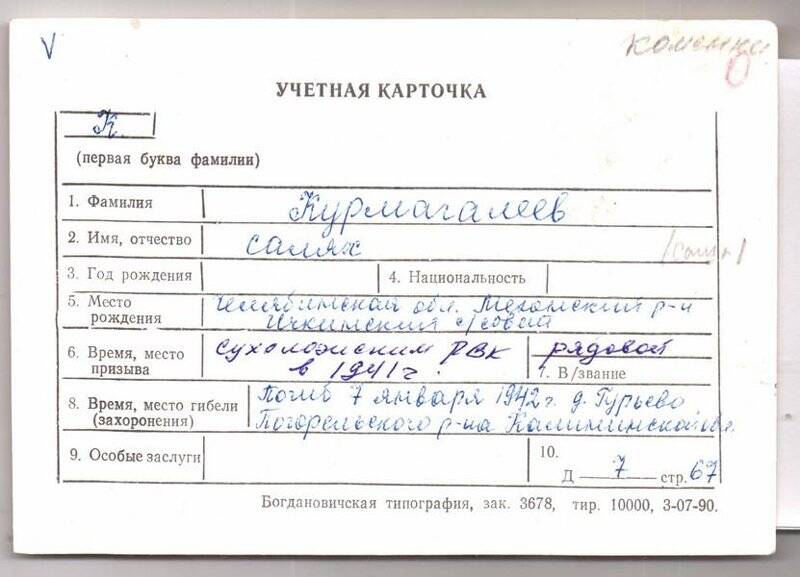 V
УЧЕТНАЯ КАРТОЧКА
К
(первая буква фамилии)
1. Фамилия Курмагалеев
2. Имя, отчество Салях
3. Год рождения 4. Национальность
5. Место рождения Челябинская обл. Мехонский р-н
Ичкинский с/совет
6. Время, место призыва Сухоложским РВК
в 1941 г.
рядовой
7. В/звание
8. Время, место гибели (захоронения) Погиб 7 января 1942 г. д. Гурьево
Погорельского р-на Калининской обл.
9. Особые заслуги
10.
Д 7 стр. 67
Богдановичская типография, зак. 3678, тир. 10000, 3-07-90.